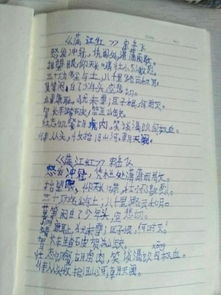 《满江红》岳飞
怒发冲冠，凭栏处潇潇雨歇。
抬望眼，仰天长啸，壮怀激烈。
三十功名尘与土，八千里路云和月。
莫等闲白了少年头，空悲切。
靖康耻，犹未雪；臣子恨，何时灭。
驾长车踏破贺兰山缺。
壮志饥餐胡虏肉，笑谈渴饮匈奴血。
待从头，收拾旧山河，朝天阙。
《满江红》岳飞
怒发冲冠，凭栏处潇潇雨歇。
抬望眼，仰天长啸，壮怀激烈。
三十功名尘与土，八千里路云和月。
莫等闲白了少年头，空悲切。
靖康耻，犹未雪；臣子恨，何时灭。
驾长车踏破贺兰山缺。
壮志饥餐胡虏肉，笑谈渴饮匈奴血。
待从头，收拾旧山河，朝天阙。